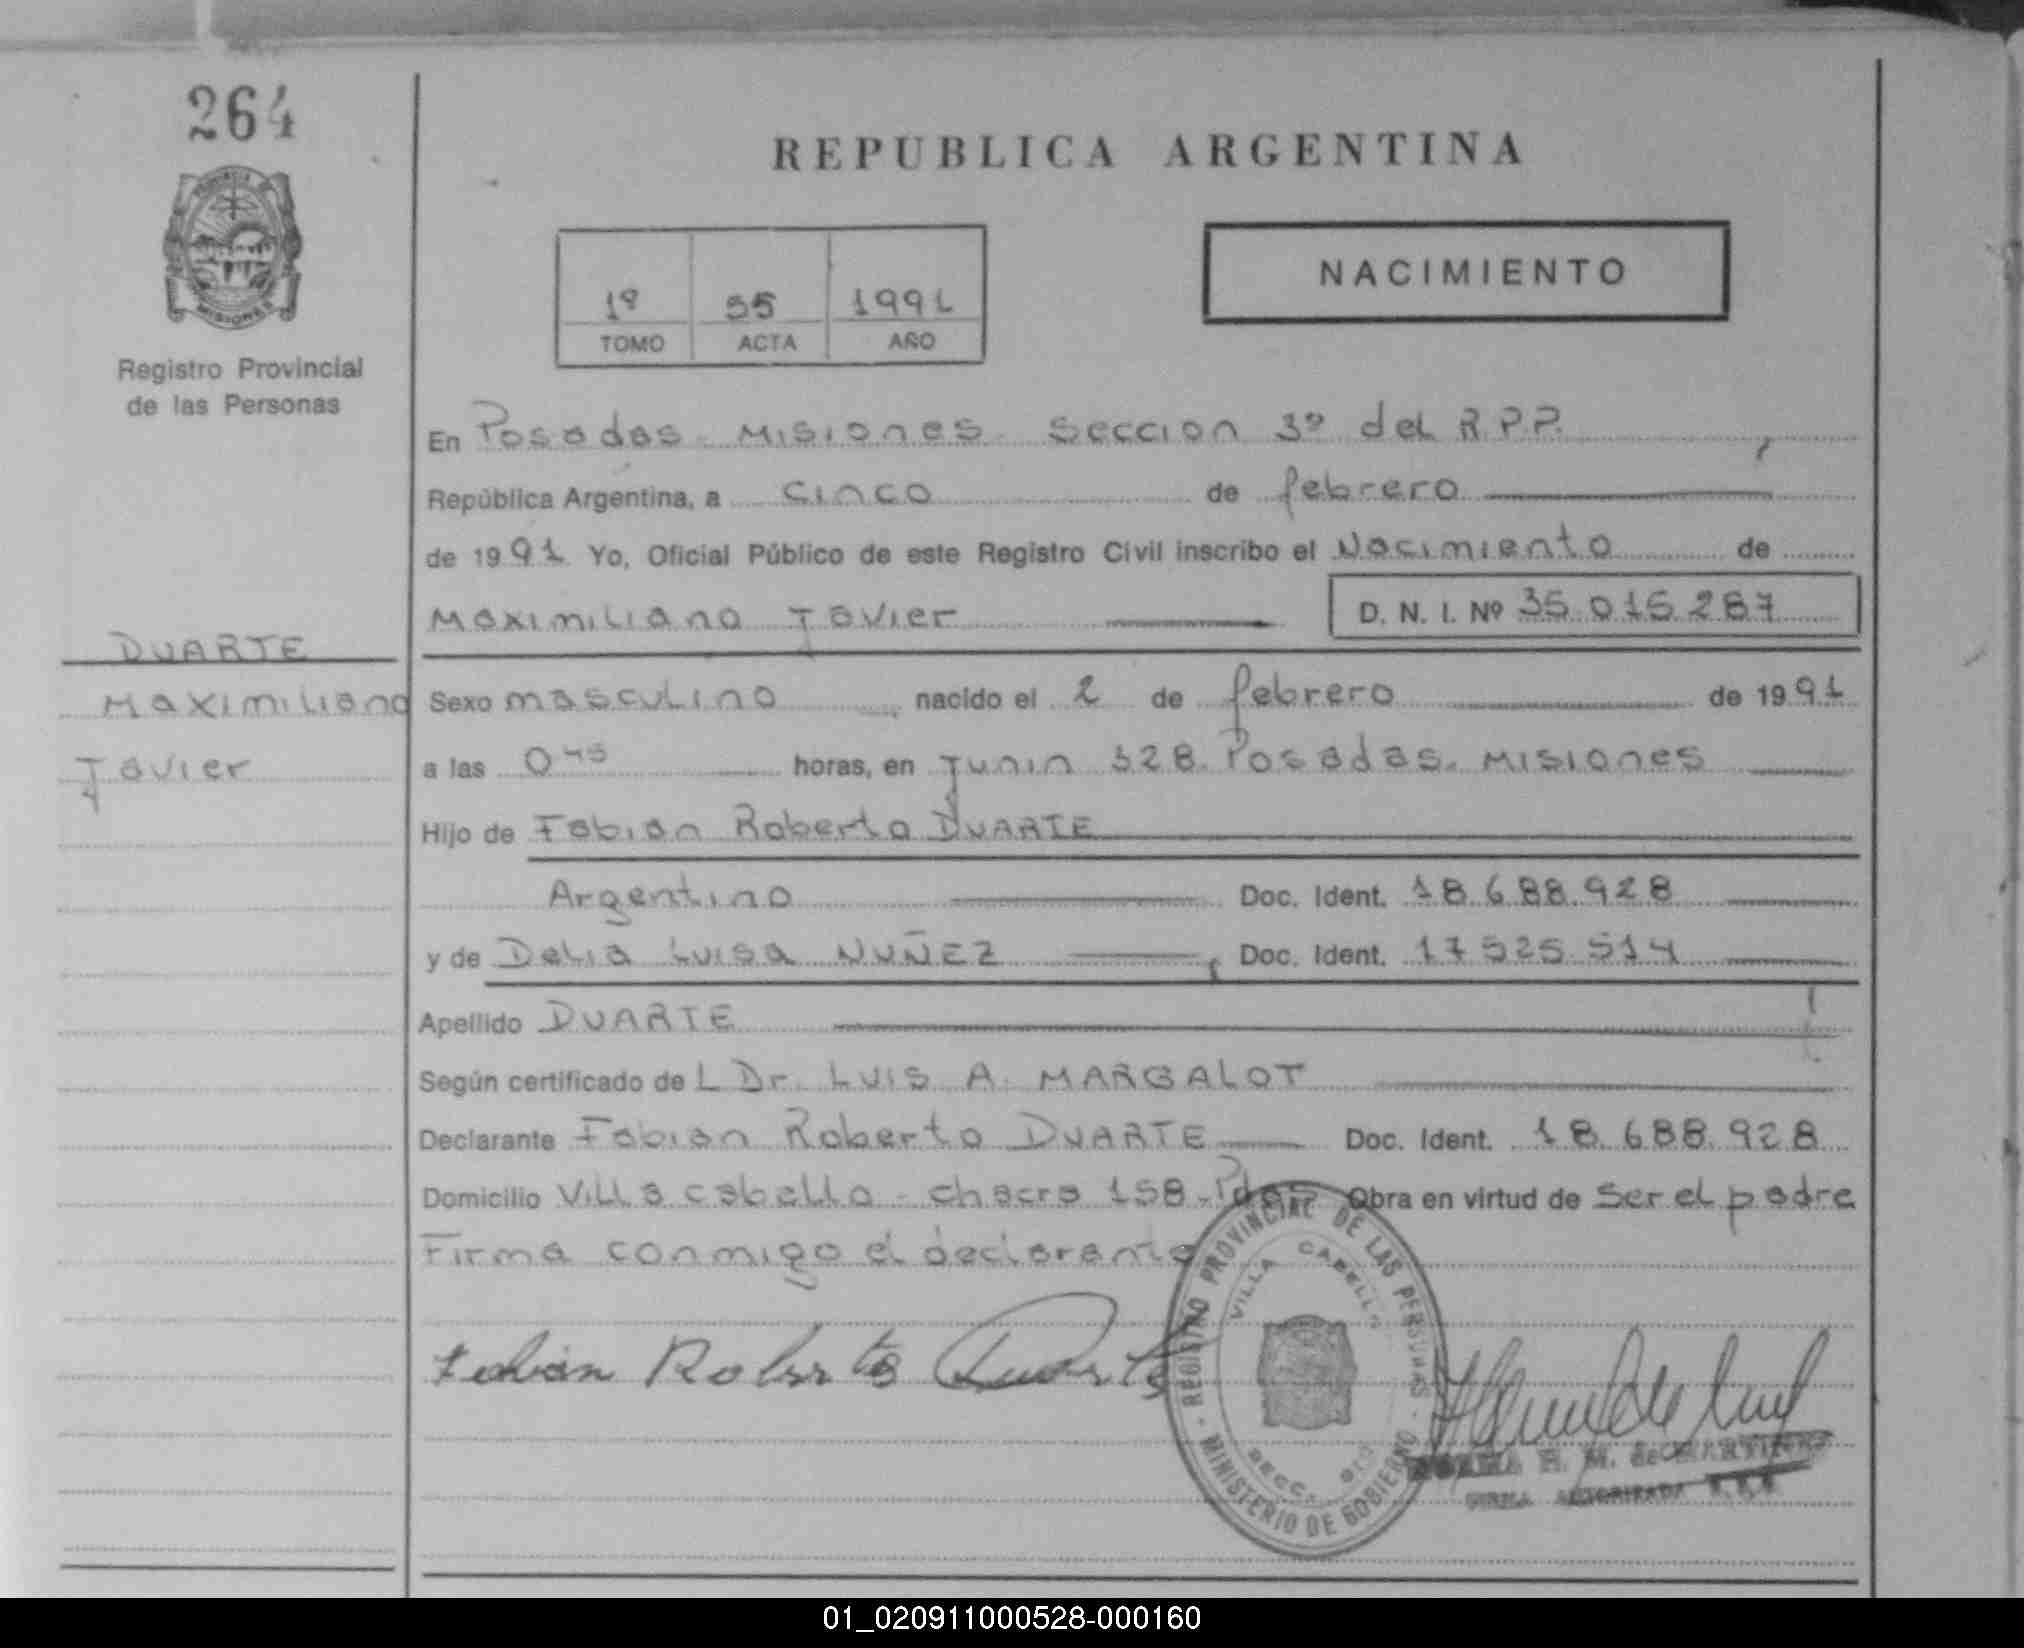 264
REPUBLICA ARGENTINA
PROVINCIA DE
MISIONES
Registro Provincial
de las Personas
1º 55 1991
TOMO ACTA AÑO
NACIMIENTO
En Posadas. Misiones. Seccion 3º del R.P.P.
República Argentina, a cinco de febrero
de 1991 Yo, Oficial Público de este Registro Civil inscribo el Nacimiento de
Maximiliano Javier D. N. I. Nº 35.015.287
DUARTE
Maximiliano
Javier
Sexo masculino nacido el 2 de febrero de 1991
a las 0 45 horas, en Junin 328. Posadas. Misiones
Hijo de Fabian Roberto DUARTE
Argentino Doc. Ident. 18.688.928
y de Delia Luisa NUÑEZ Doc. Ident. 17.525.514
Apellido DUARTE
Según certificado de L Dr. LUIS A. MARGALOT
Declarante Fabian Roberto DUARTE Doc. Ident. 18.688.928
Domicilio Villa cabello - chacra 158. Pdas Obra en virtud de ser el padre
Firma conmigo el declarante
Fabián Roberto Duarte
- REGISTRO PROVINCIAL DE LAS PERSONAS -
MINISTERIO DE GOBIERNO
VILLA CABELLO
SECC.
H. M. de MARTINEZ
FIRMA AUTORIZADA
01_020911000528-000160